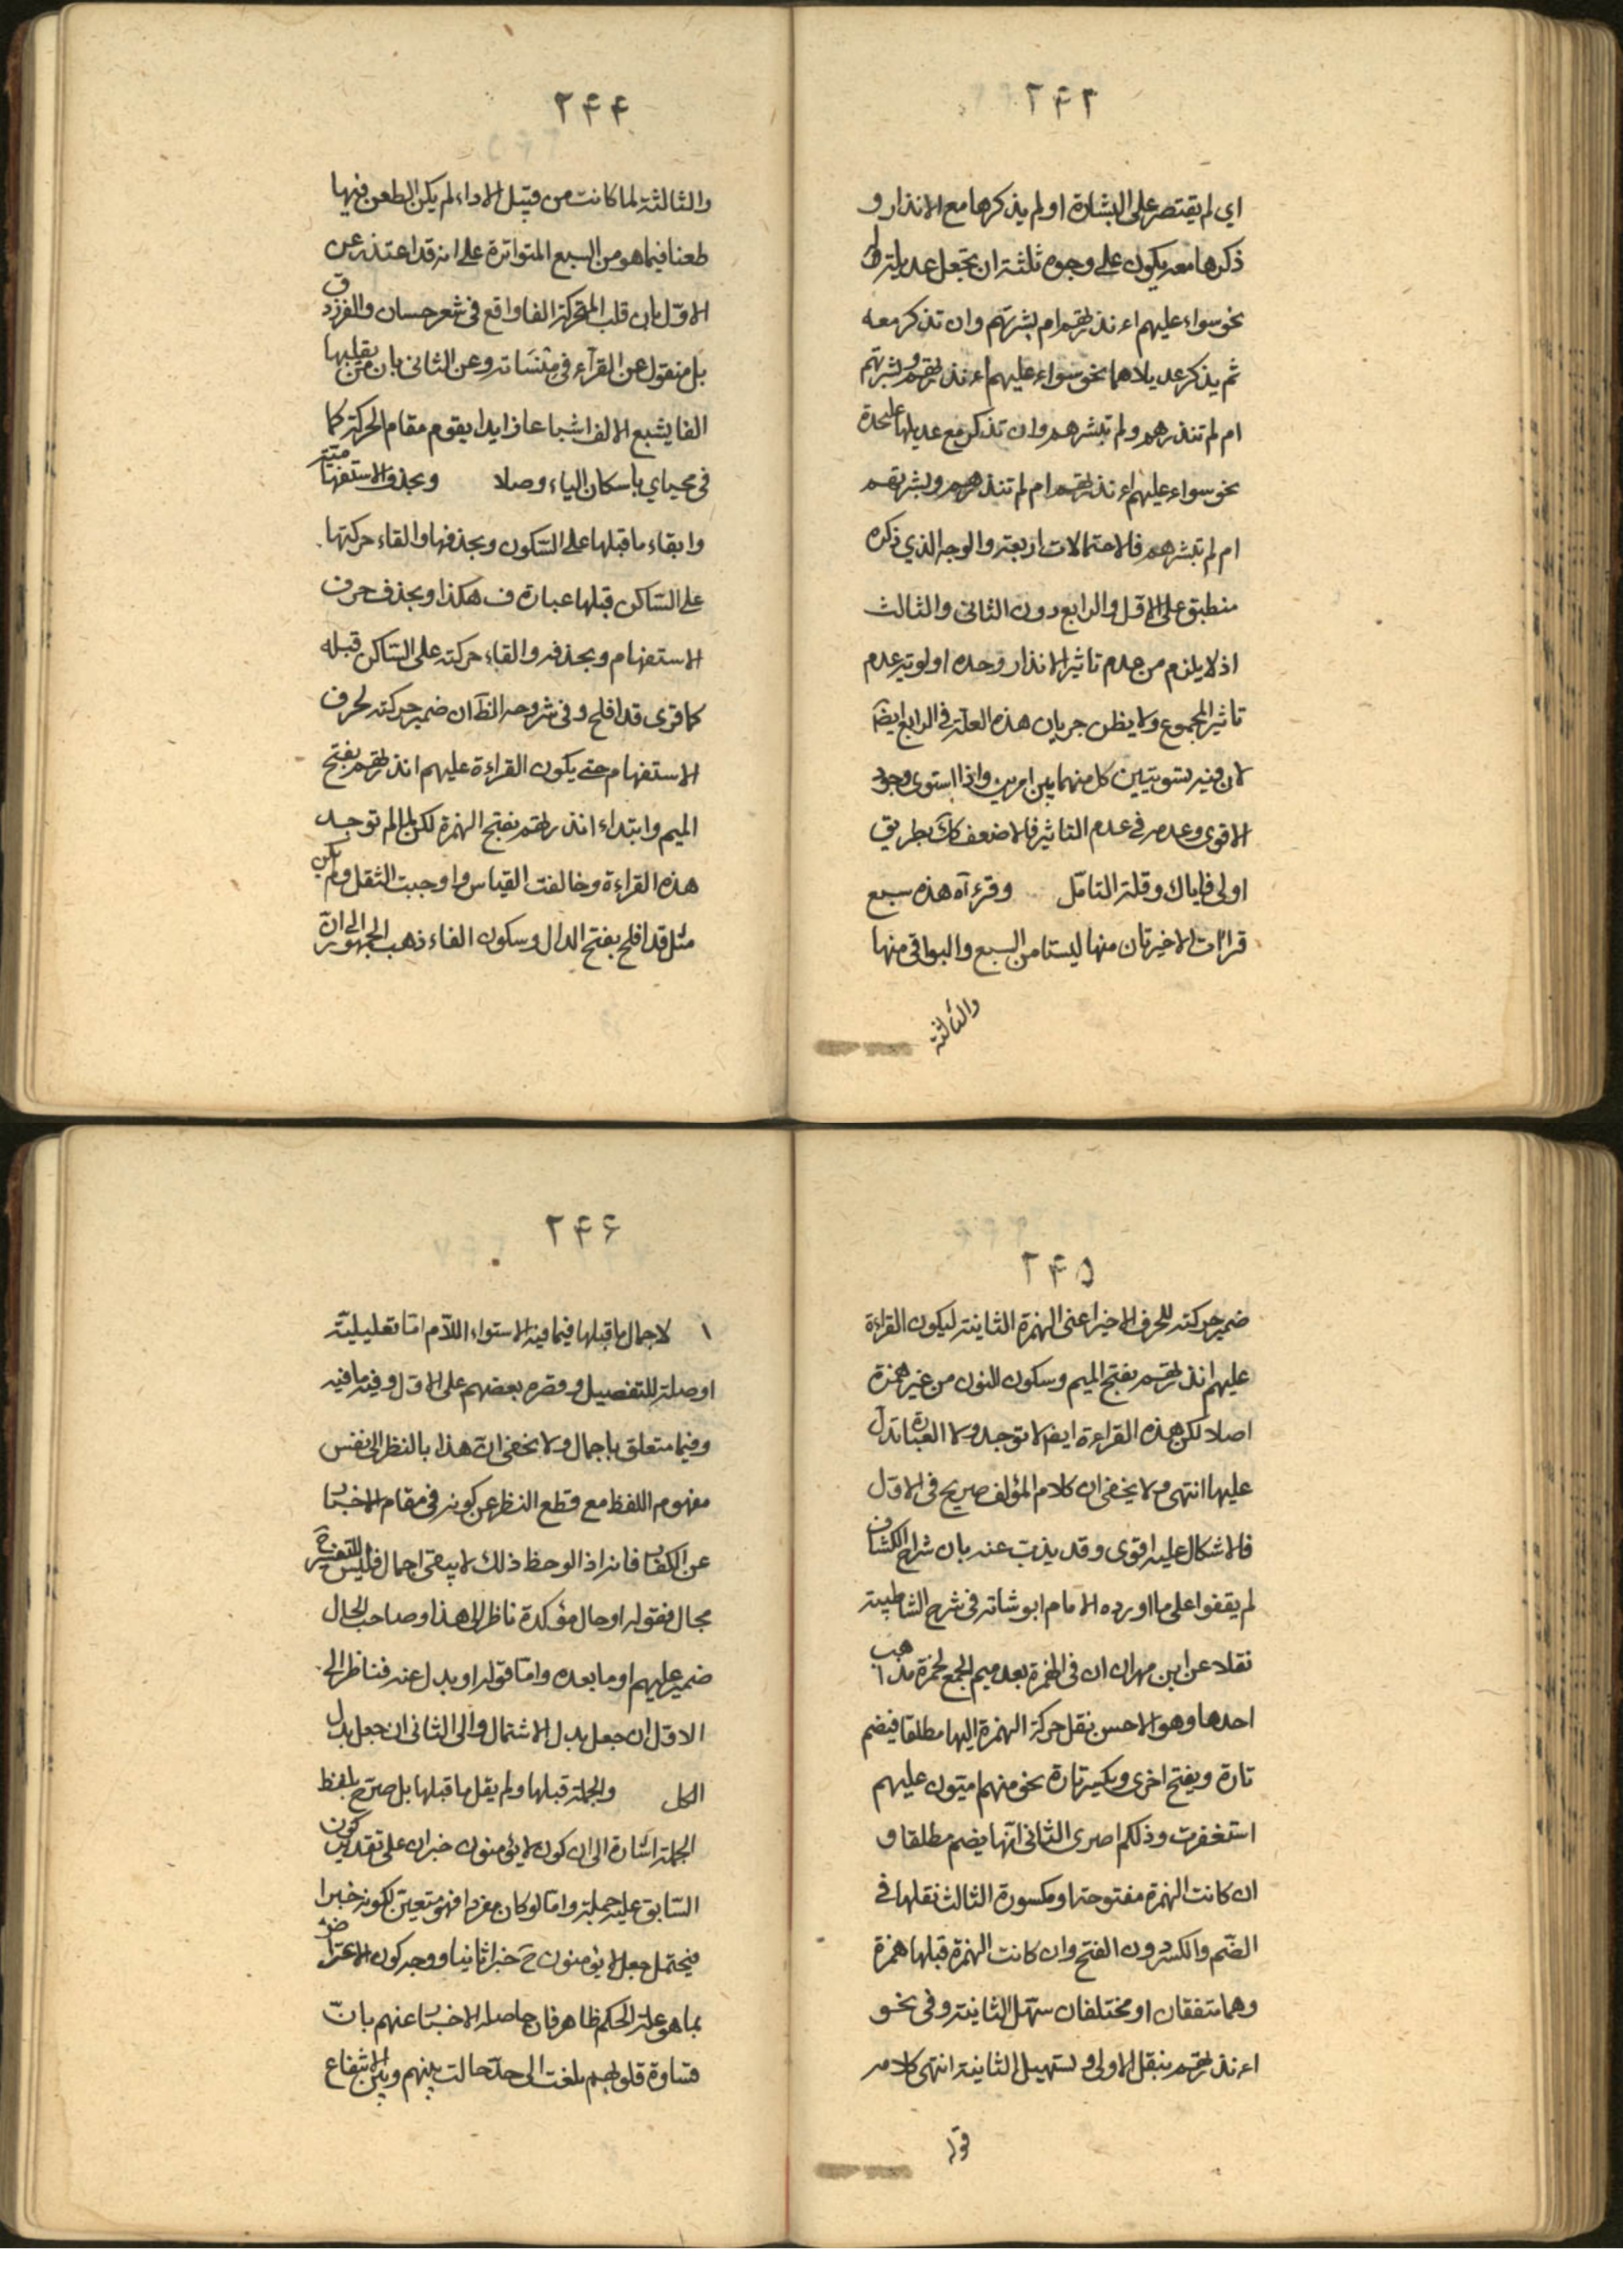 ٢۴٣
اي لم يقتصر على البشارة او لم يذكرها مع الانذار و
ذكرها معه يكون على وجوه ثلثة ان تجعل عديلة له
نحو سواء عليهم ءانذرتهم ام بشرتهم وان تذكر معه
ثم يذكر عديلاهما نحو سواء عليهم ءانذرتهم وبشرتهم
ام لم تنذرهم ولم تبشرهم وان تذكر مع عديلها علىحدة
نحو سواء عليهم ءانذرتهم ام لم تنذرهم وبشرتهم
ام لم تبشرهم فالاحتمالات اربعة والوجه الذي ذكره
منطبق على الاول والرابع دون الثاني والثالث
اذ لا يلزم من عدم تاثير الانذار وحده اولوية عدم
تاثير المجموع ولا يظن جريان هذه العلة في الرابع ايضا
لان فيه تسويتين كل منهما بين امرين واذا استوى وجود
الاقوى وعدمه في عدم التاثير فالاضعف كك بطريق
اولى فاياك وقلة التامّل وقرء آه هذه سبع
قراآت الاخيرتان منها ليستا من السبع والبواقي منها
والثالثة
٢۴۴
والثالثة لما كانت من قبيل الاداء لم يكن الطعن فيها
طعنا فيما هو من السبع المتواترة على انه قد اعتذر عن
الاوّل بان قلب المتحركة الفا واقع في شعر حسان والفرزدق
بل منقول عن القرآء في مِنْسَاته وعن الثاني بان من يقلبها
الفا يشبع الالف اشباعا زايدا يقوم مقام الحركة كما
في محياي باسكان الياء وصلا وبحذف الاستفهامية
وابقاء ما قبلها على السّكون وبحذفها والقاء حركتها
على السّاكن قبلها عبارة ف هكذا وبحذف حرف
الاستفهام وبحذفه والقاء حركته على السّاكن قبله
كما قرى قد افلح وفي شروحه الظّ ان ضمير حركته لحرف
الاستفهام حتى يكون القراءة عليهم انذرتهم بفتح
الميم وابتداء انذرتهم بفتح الهمزة لكن لما لم توجد
هذه القراءة وخالفت القياس واوجبت الثقل ولم يكن
مثل قد افلح بفتح الدال وسكون الفاء ذهب الجمهور الى انّ
٢۴۵
ضمير حركته للحرف الاخير اعنى الهمزة الثانية ليكون القراءة
عليهم انذرتهم بفتح الميم وسكون النون من غير همزة
اصلا لكن هذه القراءة ايضا لا توجد ولا العبارة تدل
عليها انتهى ولا يخفى ان كلام المؤلف صريح في الاول
فالاشكال عليه اقوى وقد يذب عنه بان شراح الكشاف
لم يقفوا على ما اورده الامام ابو شامة في شرح الشاطبية
نقلا عن ابن مهران ان في الهمزة بعد ميم الجمع لحمزة مذاهب
احدها وهو الاحسن نقل حركة الهمزة اليها مطلقا فيضم
تارة ويفتح اخرى ويكسر تارة نحو منهم اميون عليهم
استغفرت وذلكم اصرى الثاني انّها يضم مطلقا و
ان كانت الهمزة مفتوحة او مكسورة الثالث نقلها في
الضّم والكسر دون الفتح وان كانت الهمزة قبلها همزة
وهما متفقان او مختلفان سهّل الثانية وفي نحو
ءانذرتهم بنقل الاولى وتسهيل الثانية انتهى كلامه
قوله
٢۴۶
لاجمال ما قبلها فيما فيه الاستواء اللاّم امّا تعليليّة
او صلة للتفصيل وقصره بعضهم على الاول وفيه ما فيه
وفيما متعلق باجمال ولا يخفى انّ هذا بالنظر الى نفس
مفهوم اللفظ مع قطع النظر عن كونه في مقام الاخبار
عن الكفار فانه اذا لوحظ ذلك لا يبقى اجمال فليس للتفسير ح
مجال فقوله او حال مؤكدة ناظر الى هذا وصاحب الحال
ضمير عليهم او ما بعده وامّا قوله او بدل عنه فناظر الى
الاول ان جعل بدل الاشتمال والى الثاني ان جعل بدل
الكل والجملة قبلها ولم يقل ما قبلها بل صرّح بلفظ
الجملة اشارة الى ان كون لا يؤمنون خبر ان على تقدير كون
السّابق عليه جملة وامّا لو كان مفردا فهو متعيّن لكونه خبرا
فيحتمل جعل لا يؤمنون ح خبرا ثانيا ووجه كون الاعتراض
بما هو علة الحكم ظاهر فان حاصله الاخبار عنهم بانّ
قساوة قلوبهم بلغت الى حدّ حالت بينهم وبين الانتفاع